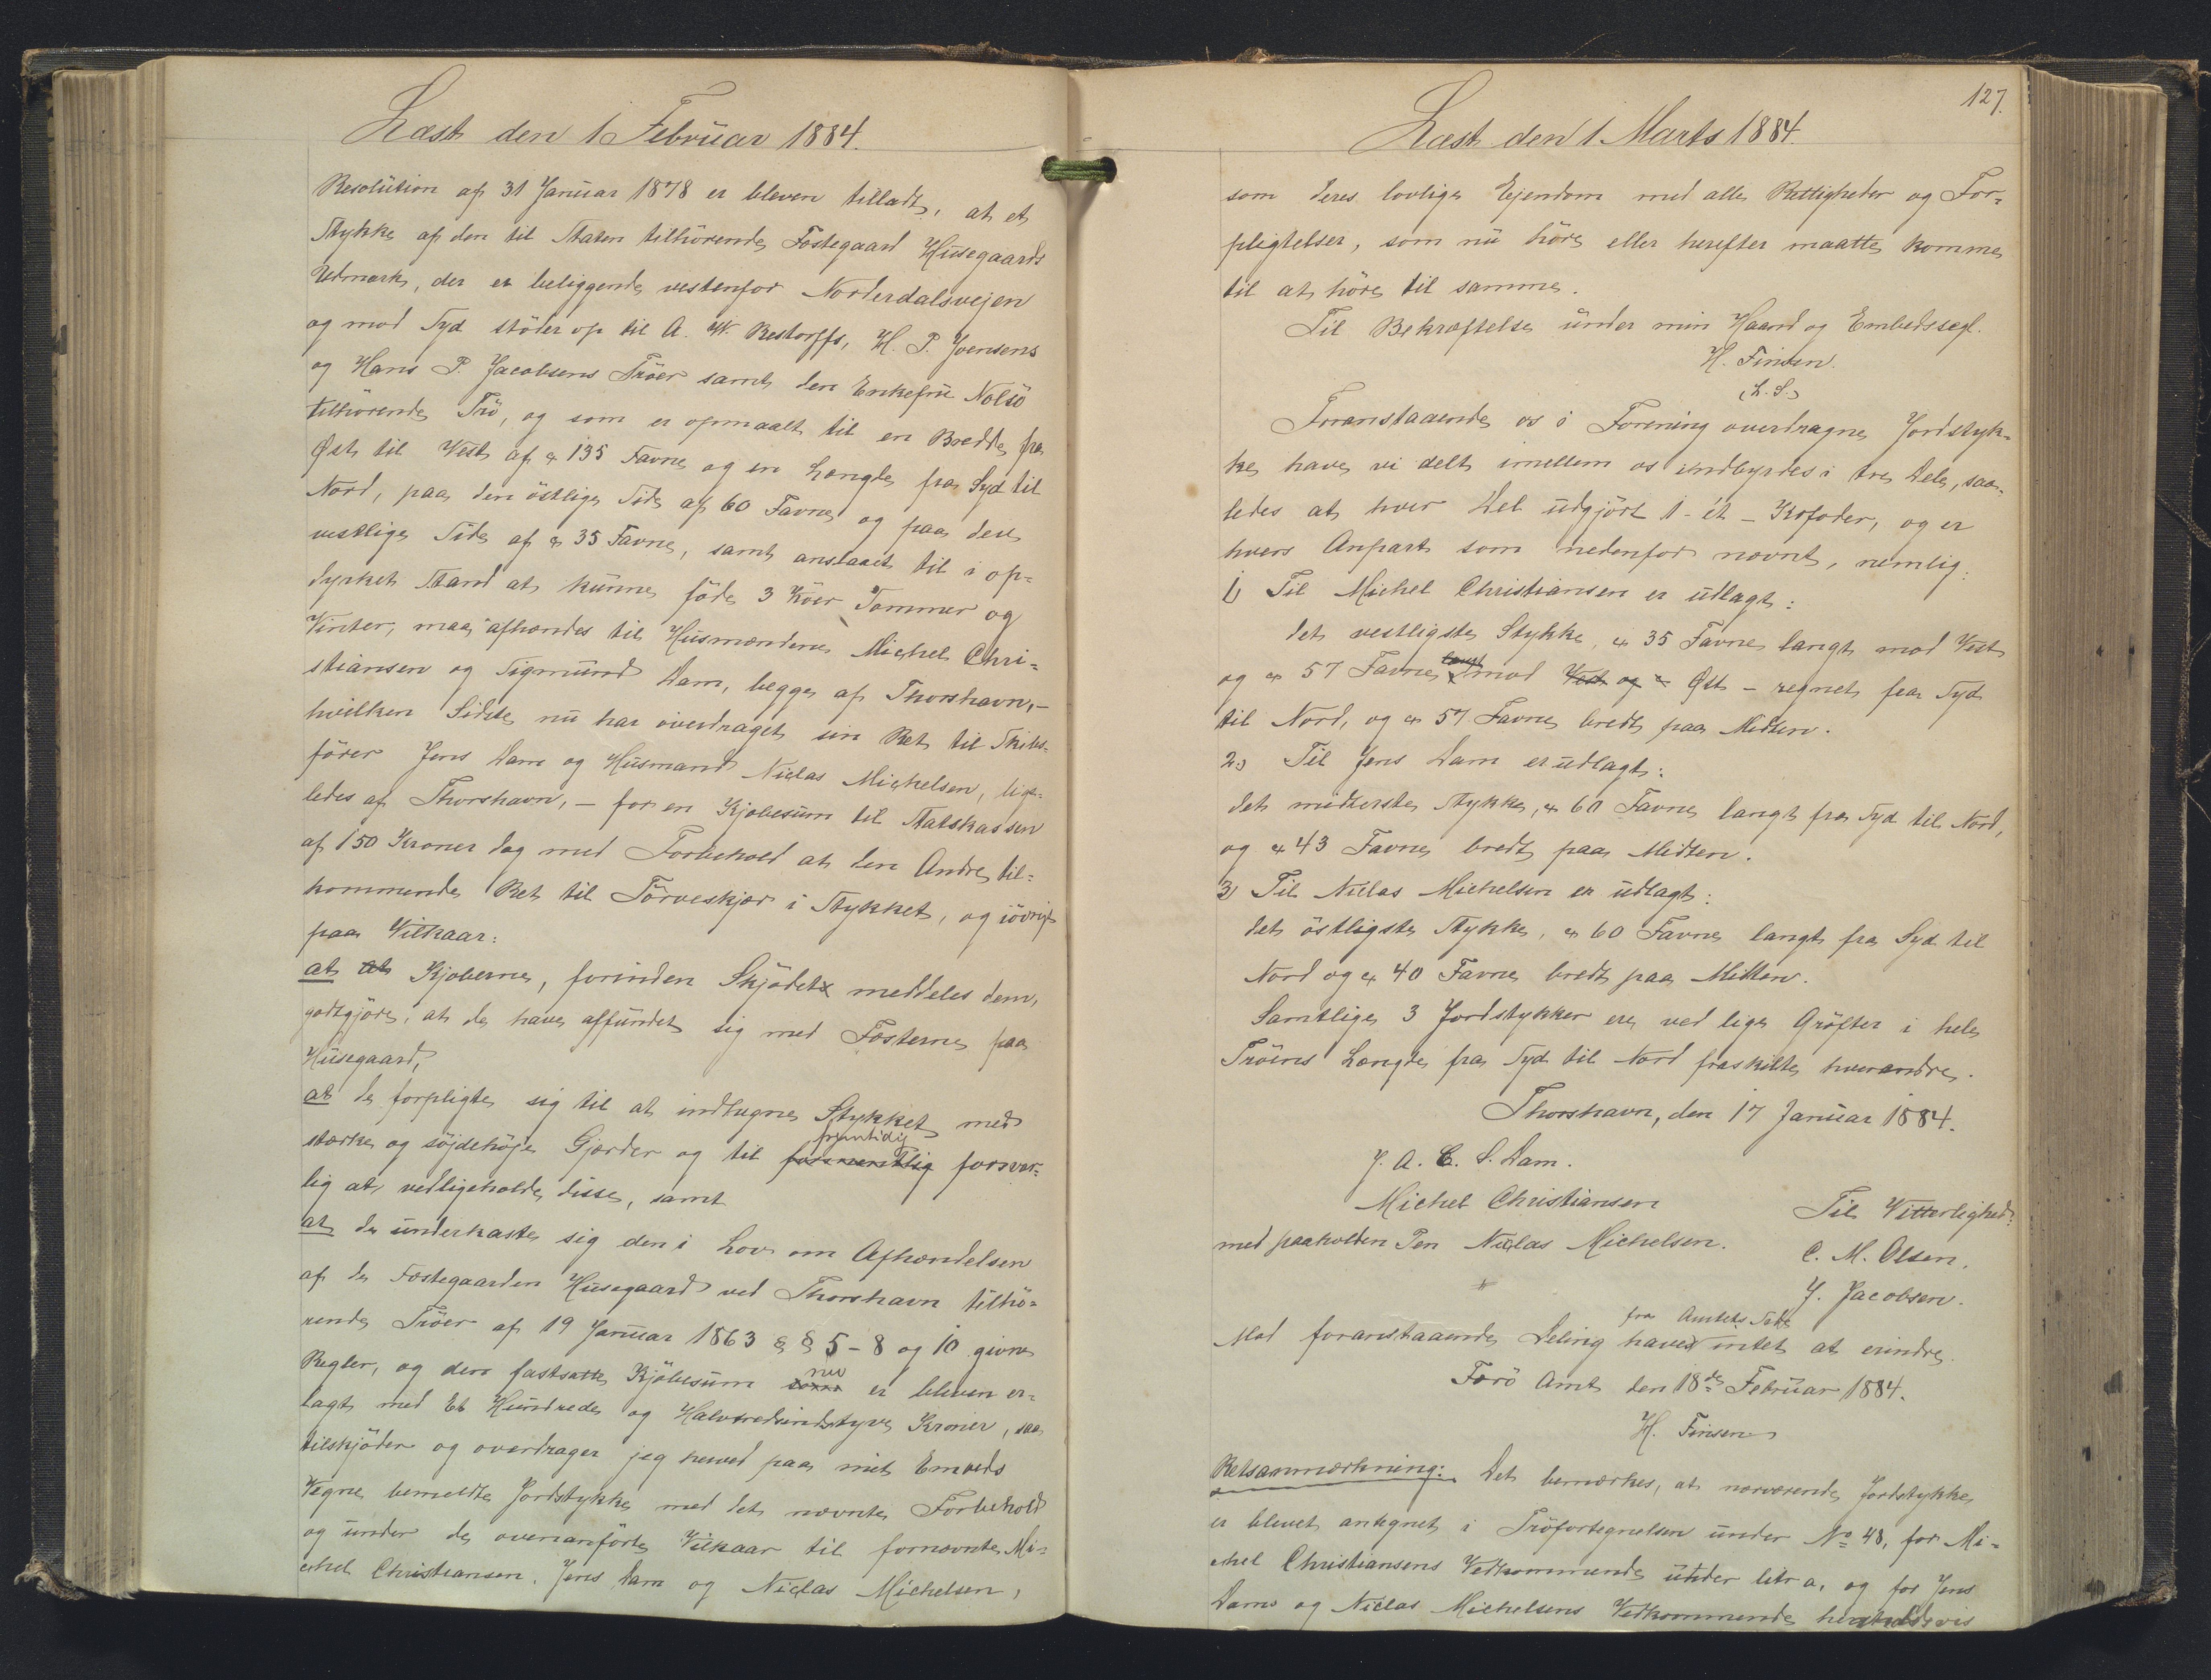 Læst den 1 Februar 1884.
Resolution af 31 Januar 1878 er bleven tilladt, at et
Stykke af den til Staten tilhörende Fæstegaard Husegaards
Udmark, der er beliggende vestenfor Norderdalsvejen
og mod Syd stöder op til A. W. Restorffs, H. P. Joensens
og Hans P. Jacobsens Tröer samt den Enkefru Nolsö
tilhörende Trö, og som er opmaalt til en Bredde fra
Øst til Vest af 135 Favne og en Længde fra Syd til
Nord, paa den östlige Side af 60 Favne og paa den
vestlige Side af 35 Favne, samt anslaaet til i op-
dyrket Stand at kunne föde 3 Köer Sommer og
Vinter, maa afhændes til Husmændene Michel Chri-
stiansen og Sigmund Dam, begge af Thorshavn, -
hvilken Sidste nu har overdraget sin Ret til Skibs-
förer Jens Dam og Husmand Niclas Michelsen, lige-
ledes af Thorshavn, - for en Kjøbesum til Statskassen
af 150 Kroner dog med Forbehold at den Andre til-
kommende Ret til Törveskjær i Stykket, og iövrigt
paa Vilkaar:
at at Kjøberne, forinden Skjödet meddeles dem,
godtgjöre, at de have affundet sig med Fæsterne paa
Husegaard,
at de forpligte sig til at indhegne Stykket med
stærke og söjdehöje Gjærder og til fremtidig forsvar-
lig at vedligeholde disse, samt
at de underkaste sig den i Lov om Afhændelsen
af de Fæstegaarden Husegaard ved Thorshavn tilhö-
rende Tröer af 19 Januar 1863 §§ 5-8 og 10 givne
Regler, og den fastsatte Kjöbesum nu er bleven er-
lagt med Et Hundrede og Halvtredsindstyve Kroner, saa
tilskjöder og overdrager jeg herved paa mit Embeds
Vegne bemeldte Jordstykke med det nævnte Forbehold
og under de ovenanførte Vilkaar til fornævnte Mi-
chel Christiansen, Jens Dam og Niclas Michelsen,
127.
Læst den 1 Marts 1884.
som deres lovlige Ejendom med alle Rettigheder og For-
pligtelser, som nu höre eller herefter maatte komme
til at höre til samme.
Til Bekræftelse under min Haand og Embedssegl.
H. Finsen.
(L.S.)
Foranstaaende os i Forening overdragne Jordstyk-
ke have vi delt imellem os indbyrdes i tre Dele, saa-
ledes at hver Del udgjört 1 - ét - Kofoder, og er
hvers Anpart som nedenfor nævnt, nemlig:
1) Til Michel Christiansen er udlagt:
det vestligste Stykke, 35 Favne langt mod Vest
og 57 Favne langt mod Vest og Øst - regnet fra Syd
til Nord, og 57 Favne bredt paa Midten.
2) Til Jens Dam er udlagt:
det midterste Stykke, 60 Favne langt fra Syd til Nord,
og 43 Favne bredt paa Midten.
3) Til Niclas Michelsen er udlagt:
det östligste Stykke, 60 Favne langt fra Syd til
Nord og 40 Favne bredt paa Midten.
Samtlige 3 Jordstykker ere ved lige Gröfter i hele
Tröens Længde fra Syd til Nord fraskilte hverandre.
Thorshavn, den 17 Januar 1884.
J. A. C. S. Dam.
Michel Christiansen
Til Vitterlighed:
med paaholden Pen Niclas Michelsen.
C. M. Olsen.
J. Jacobsen.
fra Amtets Side
Mod foranstaaende Deling haves intet at erindre.
Færö Amt den 18de Februar 1884.
H. Finsen
Retsanmærkning: Det bemærkes, at nærværende Jordstykke
er blevet antegnet i Tröfortegnelsen under No 48, for Mi-
chel Christiansens Vedkommende under litr a, og for Jens
Dams og Niclas Michelsens Vedkommende henholdsvis